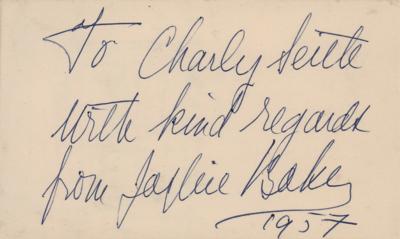 To Charly Seitte
with kind regards
from Josephine Baker
1957